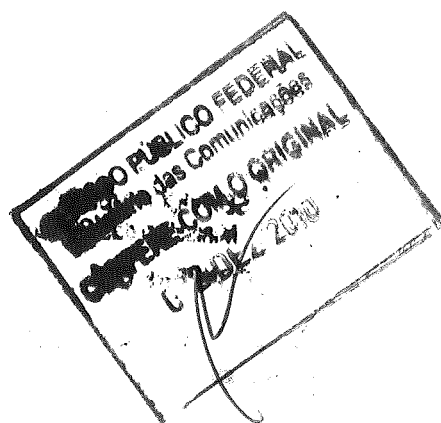 PÚBLICO FEDERAL
das Comunicações
CONFERE COM O ORIGINAL
DEZ 2010